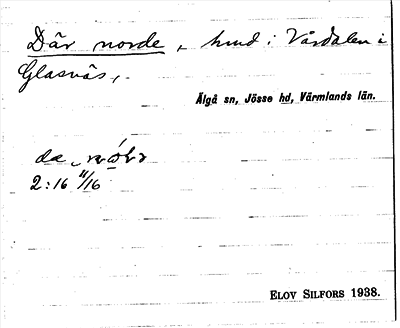 Där norde, hmd i Vårdalen i
Glasnäs,
Älgå sn, Jösse hd, Värmlands län.
da
2:16 11/16
ELOV SILFORS 1938.